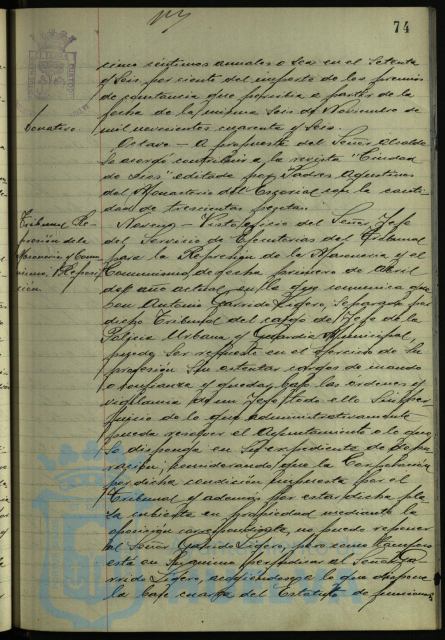 74
cinco centimos anuales o sea en el Setenta
y Seis por ciento del importe de los premios
de constancia que percibia a partir de la
fecha de la misma Seis de Noviembre de
mil novecientos cuarenta y Seis.
Donativo.
Octavo - A propuesta del Señor Alcalde
Se acordo contribuir a la revista "Ciudad
de Dios" editada por Padres Agustinos
del Monasterio del Escorial con la canti-
dad de trescientas pesetas.
Tribunal Re-
presión de la
Masoneria y Comu-
nismo. Reposi-
ción.
Noveno - Visto oficio del Señor Jefe
del Servicio de Ejecutorias del Tribunal
para la Represión de la Masoneria y el
Comunismo de fecha primero de Abril
del año actual, en la que comunica que
Don Antonio Garrido Ligero, Separado por
dicho Tribunal del cargo de Jefe de la
Policia Urbana y Guardia Municipal,
puede ser repuesto en el ejercicio de su
profesión sin ostentar cargos de mando
o confianza y quedar bajo las ordenes y
vigilancia de un Jefe todo ello sin per-
juicio de lo que administrativamente
pueda resolver el Ayuntamiento o lo que
se disponga en su expediente de depu-
ración; considerando que la Corporación
por dicha condición impuesta por el
Tribunal y además por estar dicha pla-
za cubierta en propiedad mediante la
oposición correspondiente, no puede reponer
al Señor Garrido Ligero, pero como tampoco
está en su animo perjudicar al Señor Ga-
rrido Ligero, acogiendose a lo que dispone
la base cuarta del Estatuto de funciona-